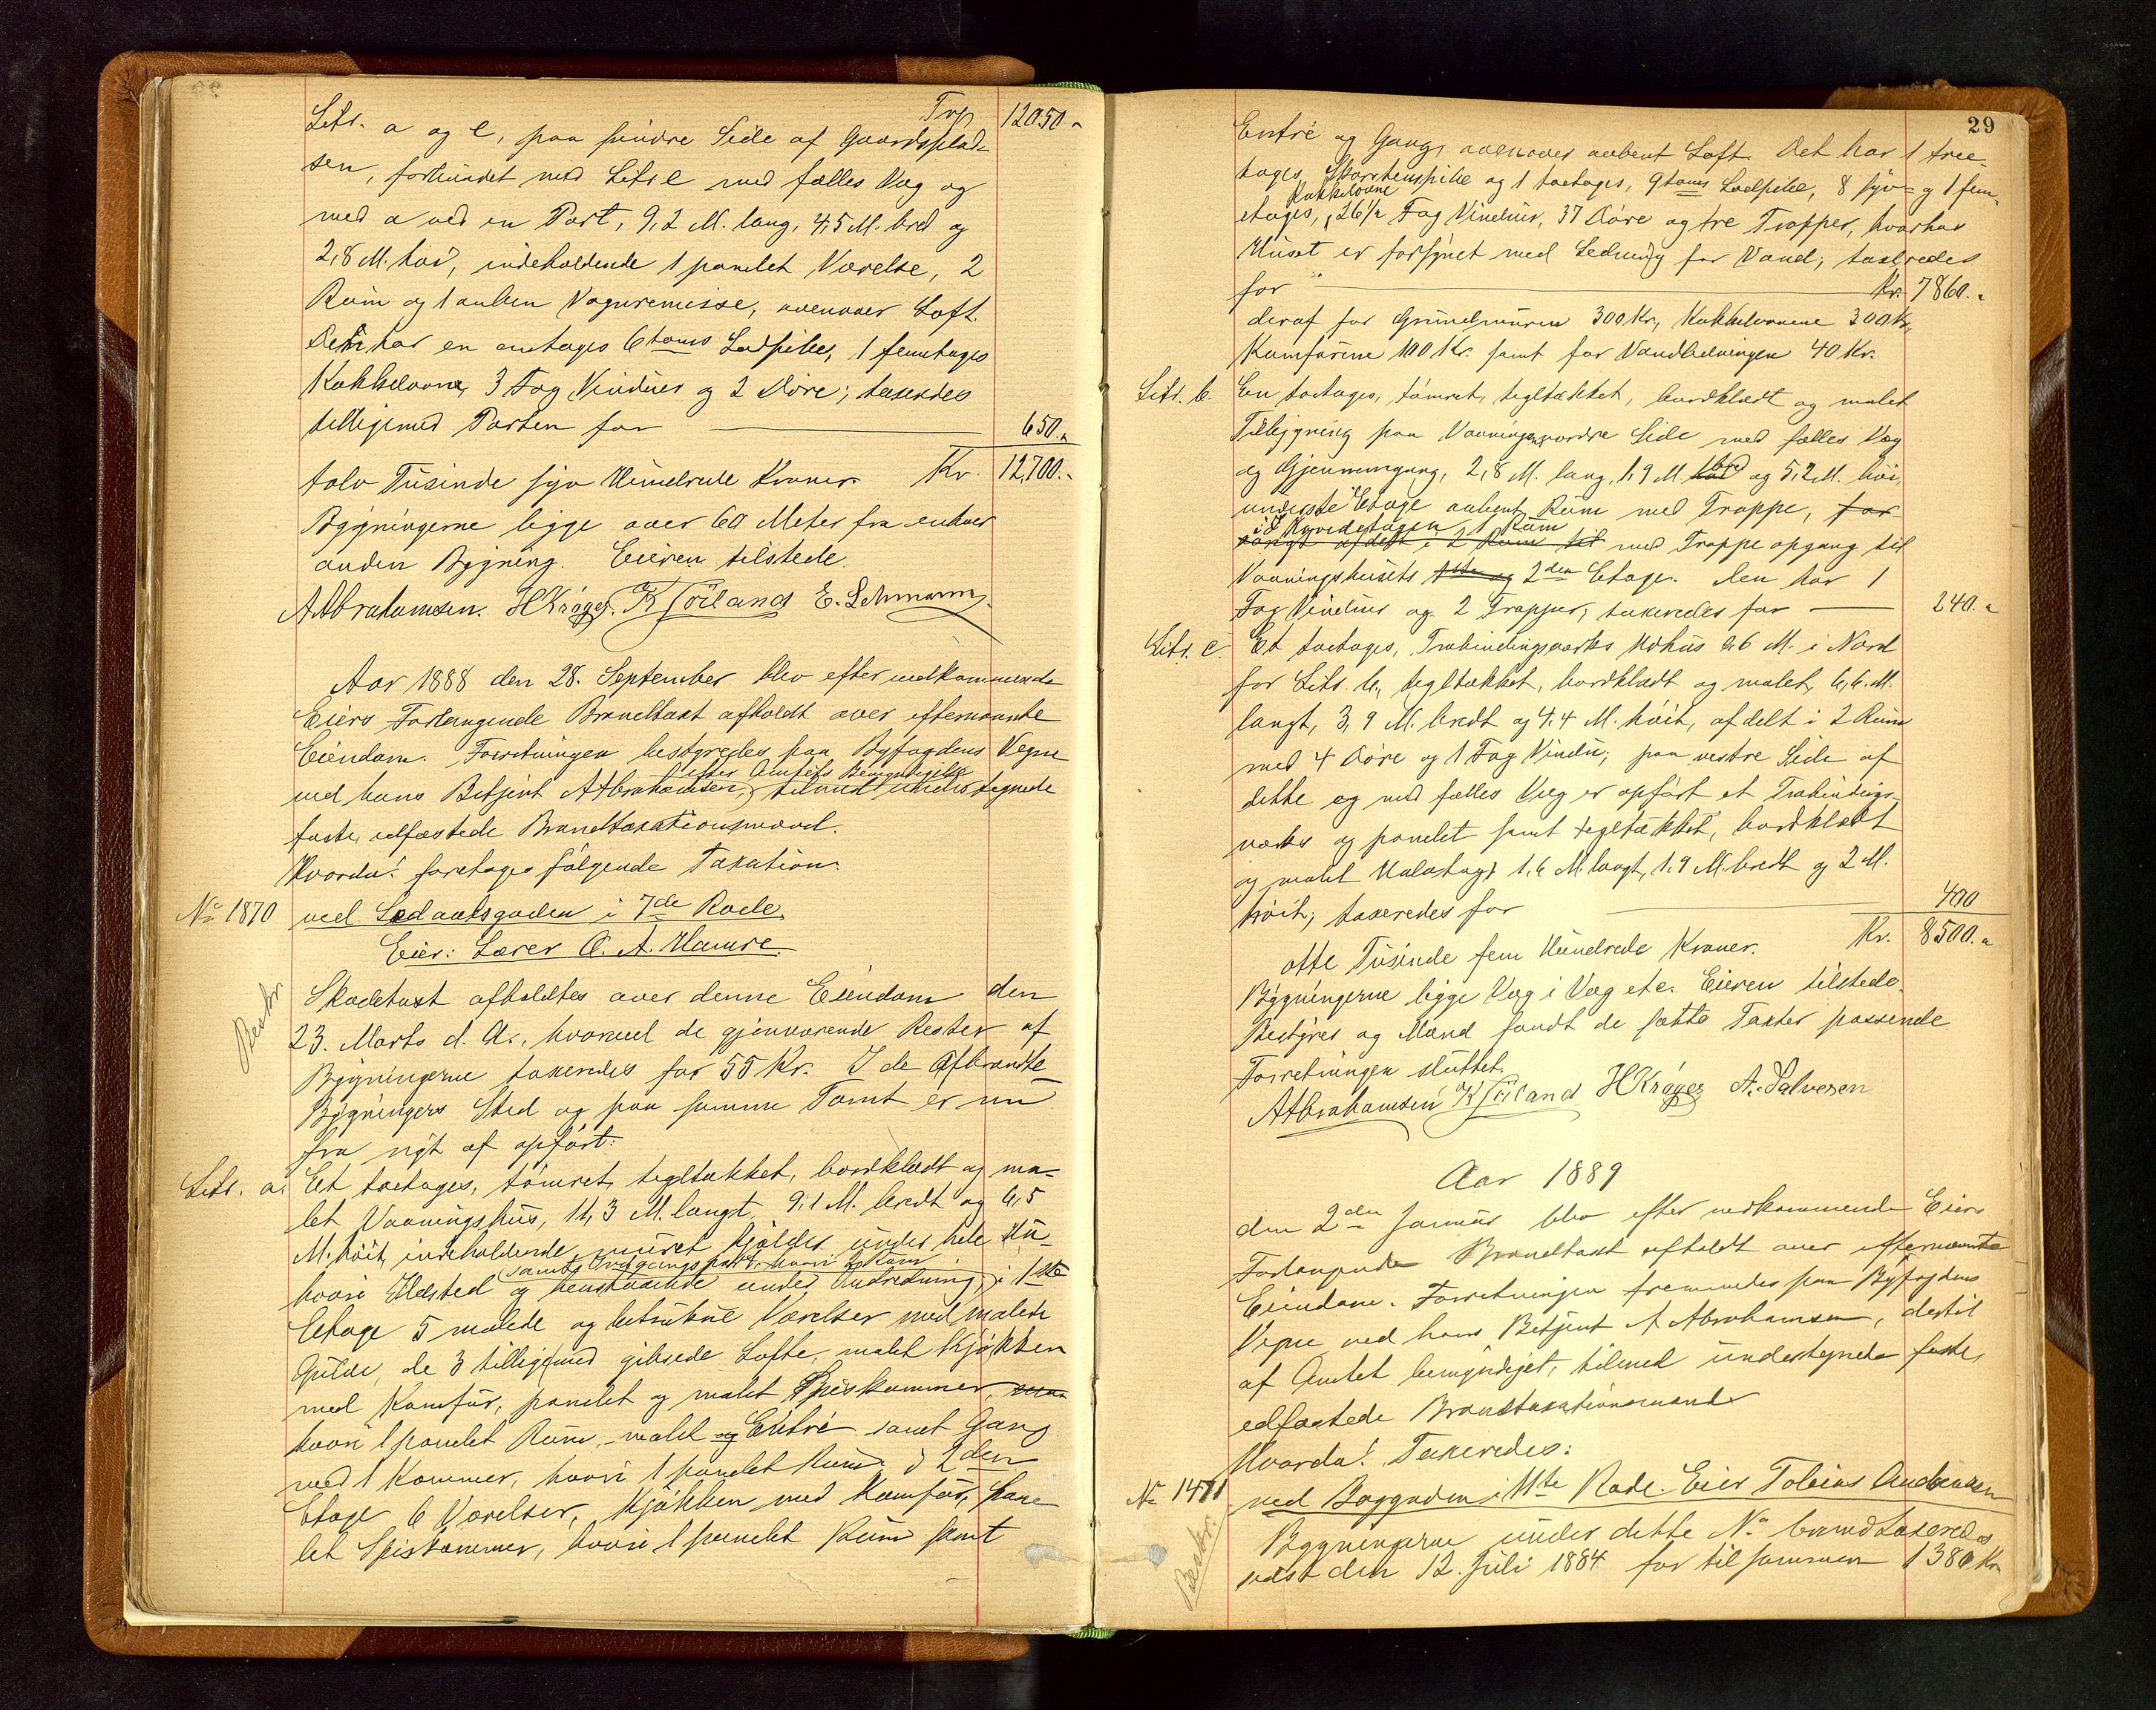 Trp 12050.-
Litr. a og e, paa søndre Side af Gaardsplad-
sen, forbundet med Litr e med fælles Væg og
med a ved en Port, 9,2 M. lang, 4,5 M. bred og
2,8 M. høi, indeholdende 1 panelet Værelse, 2
Rum og 1 aaben Vognremisse, ovenover Loft.
Den har en enetages 6 toms Ladpibe, 1 femetages
Kakkelovn, 3 Fag Vinduer og 2 Døre; taxeredes
tilligemed Porten for 650.-
tolv Tusinde syv Hundrede Kroner. Kr 12,700.-
Bygningerne ligge over 60 Meter fra enhver
anden Bygning. Eieren tilstede.
A Abrahamsen. H Krøger. K Söiland E. Lehmann.
Aar 1888 den 28. September blev efter vedkommende
Eiers Forlangende Brandtaxt afholdt over efternævnte
Eiendom. Forretningen bestyredes paa Byfogdens Vegne
ved hans Betjent A Abrahamsen, efter Amtets Bemyndigelse tilmed undertegnede
faste, edfæstede Brandtaxationsmænd.
Hvorda! foretoges følgende Taxation.
No 1870 ved Ledaalsgaden i 7de Rode,
Eier: Lærer O. A. Hamre.
Beskr.
Skadetaxt afholdtes over denne Eiendom den
23. Marts d. A., hvorved de gjenværende Rester af
Bygningerne taxeredes for 55 Kr. I de afbrændte
Bygningers Sted og paa samme Tomt er nu
fra nyt af opført:
Litr. a. Et toetages, tømret, tegltækket, bordklædt og ma-
let Vaaningshus, 11,3 M. langt, 9,1 M. bredt og 6,5
M. høit, indeholdende muret Kjælder under hele Hu-
samt Indgangsparti hvori 2 Rum
hvori Ildsted og henstaaende under Indredning, i 1ste
Etage 5 malede og betrukne Værelser med malede
Gulve, de 3 tilligemed gibsede Lofte, malet Kjøkken
med Komfur, panelet og malet Spiskammer,
hvori 1 panelet Rum, malet og Entré samt Gang
med 1 Kammer, hvori 1 panelet Rum, i 2den
Etage 6 Værelser, Kjøkken med Komfur, pane-
let Spiskammer, hvori 1 panelet Rum samt
29
Entré og Gang, ovenover aabent Loft. Det har 1 tree-
tages Skorstenspibe og 1 toetages, 9 toms Ladpibe, 8 syv- og 1 fem-
etages, Kakkelovne 26½ Fag Vinduer, 37 Døre og tre Trapper, hvorhos
Huset er forsynet med Ledning for Vand; taxeredes
for Kr. 7860.-
deraf for Grundmuren 300 Kr, Kakkelovnene 300 Kr,
Komfurene 100 Kr. samt for Vandledningen 40 Kr.
Litr. b. En toetages, tømret, tegltækket, bordklædt og malet
Tilbygning paa Vaaningens nordre Side med fælles Væg
og Gjennemgang, 2,8 M. lang, 1,9 M. bred og 5,2 M. høi,
underste Etage aabent Rum med Trappe, for-
i Kvistetagen 1 Rum
med Trappe opgang til
Vaaningshusets 1ste og 2den Etage. Den har 1
Fag Vinduer og 2 Trapper, taxeredes for 240.-
Litr. c. Et toetages, Trabindingsværks Udhus 2,6 M. i Nord
for Litr. b, tegltækket, bordklædt og malet, 6,6 M.
langt, 3,9 M. bredt og 4,4 M. høit, afdelt i 2 Rum
med 4 Døre og 1 Fag Vindu; paa vestre Side af
dette og med fælles Væg er opført et Trabindings-
værks og panelet samt tegltækket, bordklædt
og malet Halvtag, 1,6 M. langt, 1,9 M. bredt og 2 M.
høit; taxeredes for 400
otte Tusinde fem Hundrede Kroner. Kr. 8500.-
Bygningerne ligge Væg i Væg etc. Eieren tilstede.
Bestyrer og Mænd fandt de satte Taxter passende
Forretningen sluttet.
A Abrahamsen K Söiland H Krøger A. Salvesen
Aar 1889
den 2den Januar blev efter vedkommende Eiers
Forlangende Brandtaxt afholdt over efternævnte
Eiendom. Forretningen fremmedes paa Byfogdens
Vegne ved hans Betjent A Abrahamsen, dertil
af Amtet bemyndiget, tilmed undertegnede faste,
edfæstede Brandtaxationsmænd
Hvorda! Taxeredes:
No 1471 ved Baggaden i 11te Rode. Eier Tobias Andreasen
Beskr.
Bygningerne under dette No brandtaxeredes
sidst den 12. Juli 1884 for tilsammen 1380 Kr